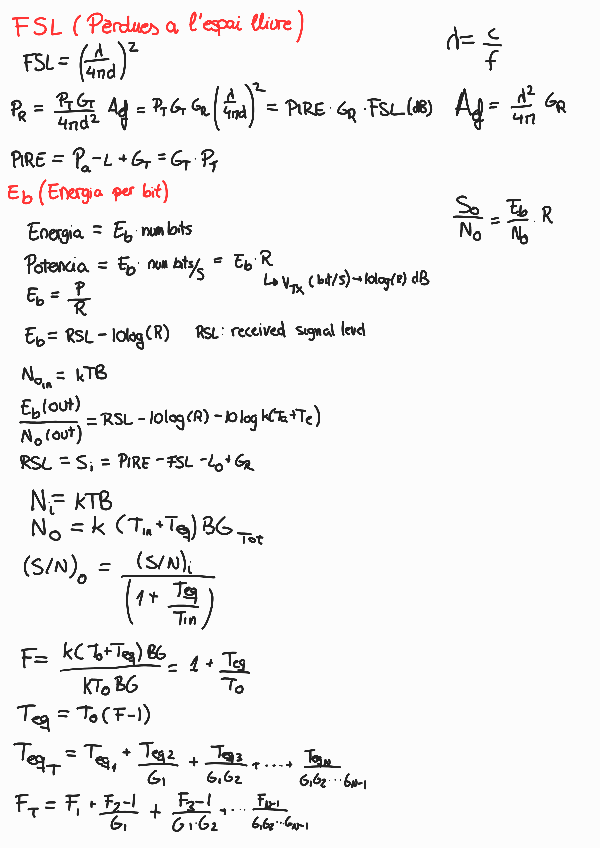 FSL (Pèrdues a l'espai lliure)
FSL = (λ/4πd)²
λ = c/f
P_R = P_T G_T/4πd² · A_ef = P_T G_T G_R (λ/4πd)² = PIRE · G_R · FSL (dB)
A_ef = λ²/4π G_R
PIRE = P_a - L + G_T = G_T · P_T
E_b (Energia per bit)
Energia = E_b · num bits
S_o/N_o = E_b/N_o · R
Potencia = E_b · num bits/s = E_b · R
↳ V_TX (bit/s) → 10log(R) dB
E_b = P/R
E_b = RSL - 10log(R) RSL: received signal level
N_o_in = kTB
E_b(out)/N_o(out) = RSL - 10log(R) - 10log k(T_a+T_e)
RSL = S_i = PIRE - FSL - L_o + G_R
N_i = KTB
N_o = k (T_in + T_eq) B G_Tot
(S/N)_o = (S/N)_i/(1 + T_eq/T_in)
F = k(T_o + T_eq) BG/KT_o BG = 1 + T_eq/T_o
T_eq = T_o (F-1)
T_eq_T = T_eq_1 + T_eq2/G_1 + T_eq3/G_1G_2 + ···· + T_eqN/G_1G_2···G_N-1
F_T = F_1 + F_2-1/G_1 + F_3-1/G_1·G_2 + ··· F_N-1/G_1G_2···G_N-1